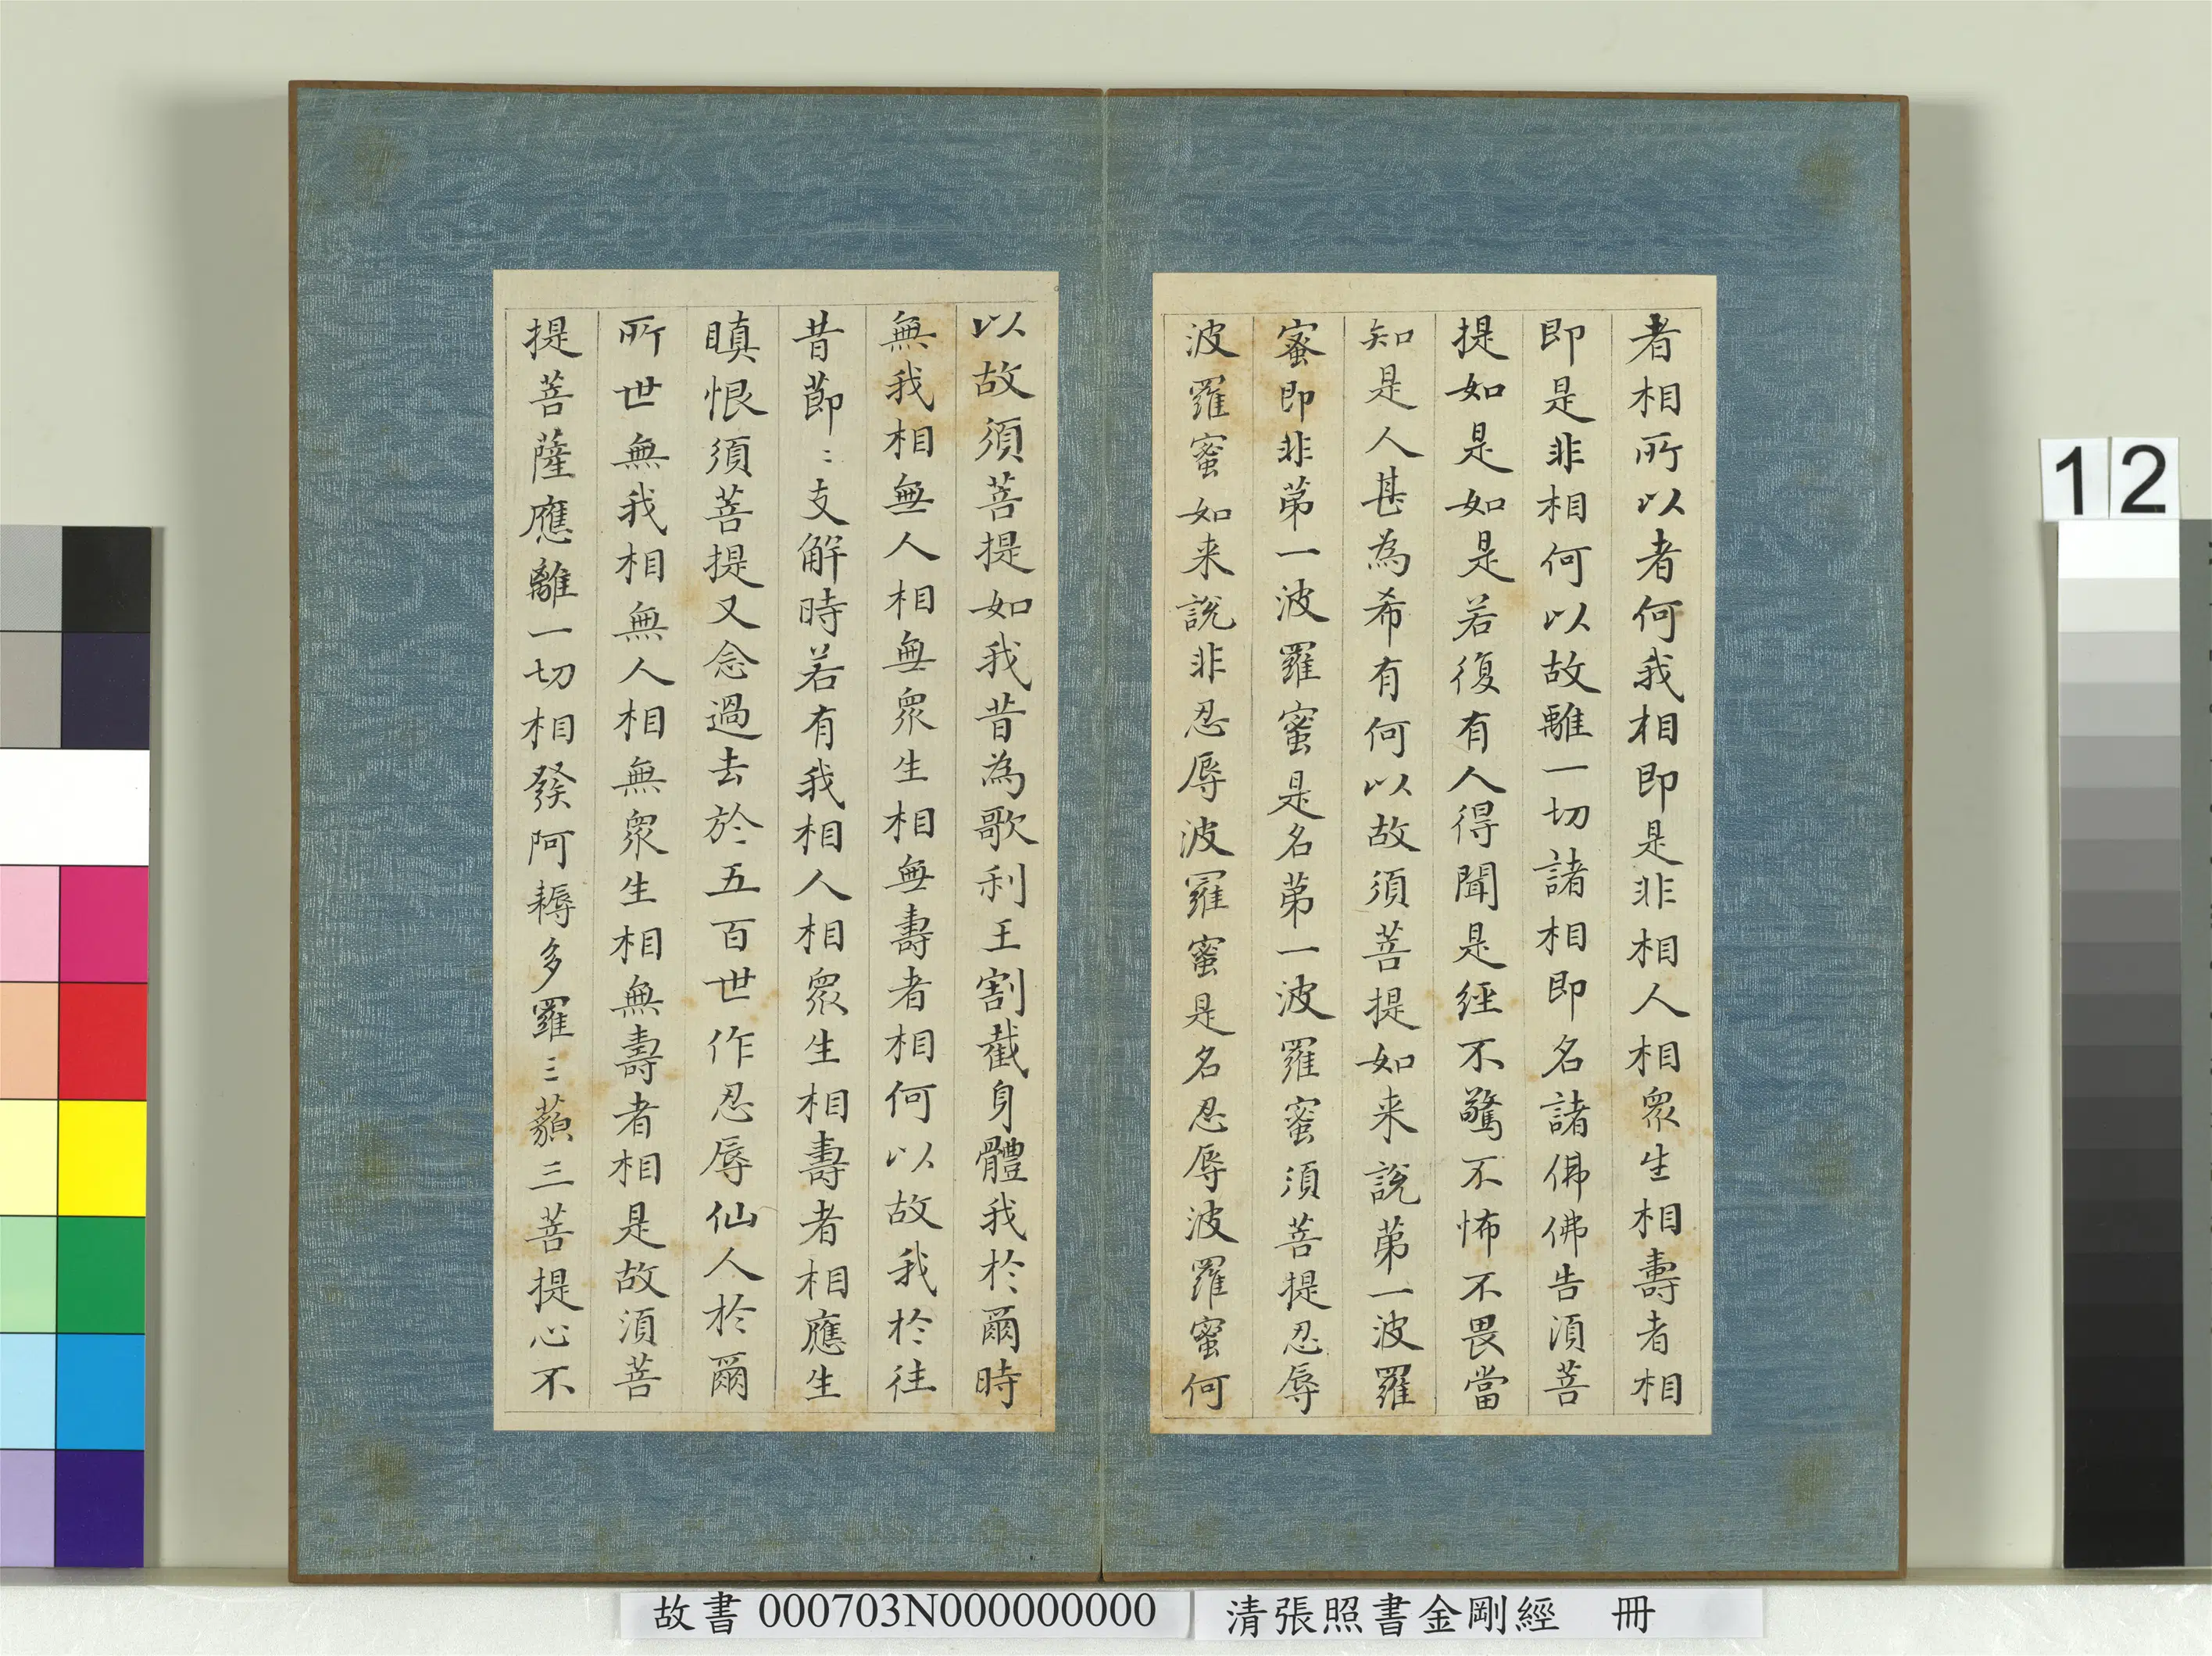 者相所以者何我相即是非相人相衆生相壽者相
即是非相何以故離一切諸相即名諸佛佛告須菩
提如是如是若復有人得聞是經不驚不怖不畏當
知是人甚為希有何以故須菩提如来說苐一波羅
蜜即非苐一波羅蜜是名苐一波羅蜜須菩提忍辱
波羅蜜如来說非忍辱波羅蜜是名忍辱波羅蜜何
以故須菩提如我昔為歌利王割截身體我於爾時
無我相無人相無衆生相無壽者相何以故我於往
昔節〻支解時若有我相人相衆生相壽者相應生
瞋恨須菩提又念過去於五百世作忍辱仙人於爾
所世無我相無人相無衆生相無壽者相是故須菩
提菩薩應離一切相發阿耨多羅三藐三菩提心不
12
故書 000703N000000000
清張照書金剛經 冊